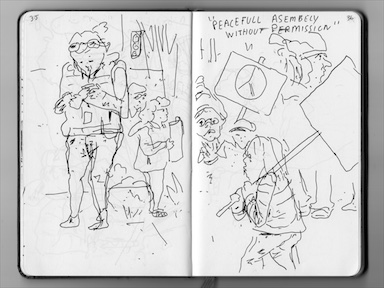 35
36
"PEACEFULL ASEMBELY
WITHOUT PERMISSION"